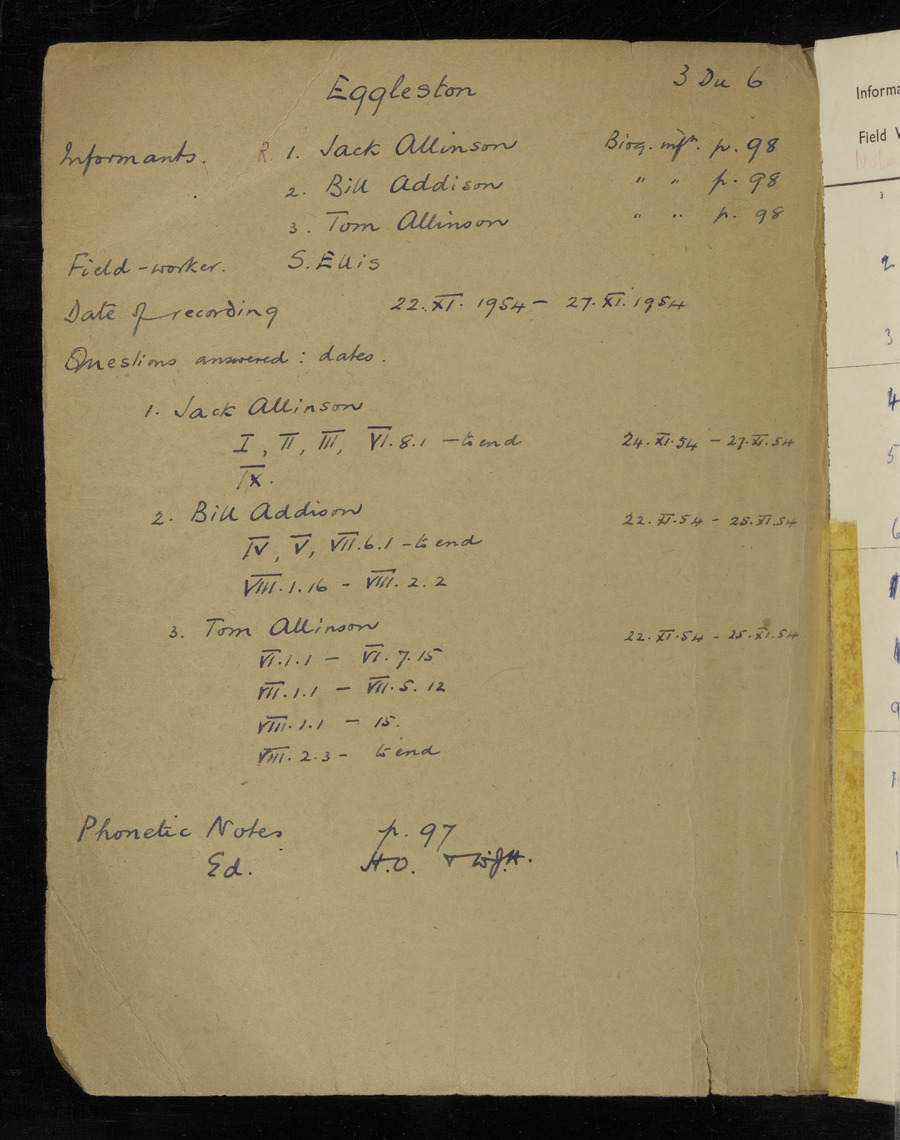 Eggleston 3 Du 6
Informants. R 1. Jack Allinson Biog. infn. p. 98
2. Bill Addison " " p. 98
3. Tom Allinson " " p. 98
Field-worker. S. Ellis
Date of recording 22. XI. 1954 – 27. XI. 1954
Questions answered : dates.
1. Jack Allinson
I, II, III, VI. 8. 1 – to end 24. XI. 54 – 27. XI. 54
IX.
2. Bill Addison 22. XI. 54 – 25. XI. 54
IV, V, VII. 6. 1 – to end
VIII. 1. 16 – VIII. 2. 2
3. Tom Allinson 22. XI. 54 – 25. XI. 54
VI. 1. 1 – VI. 7. 15
VII. 1. 1 – VII. 5. 12
VIII. 1. 1 – 15.
VIII. 2. 3 – to end
Phonetic Notes p. 97
Ed. H.O. + W.J.H.
Informa
Field
2
3
4
5
6
9